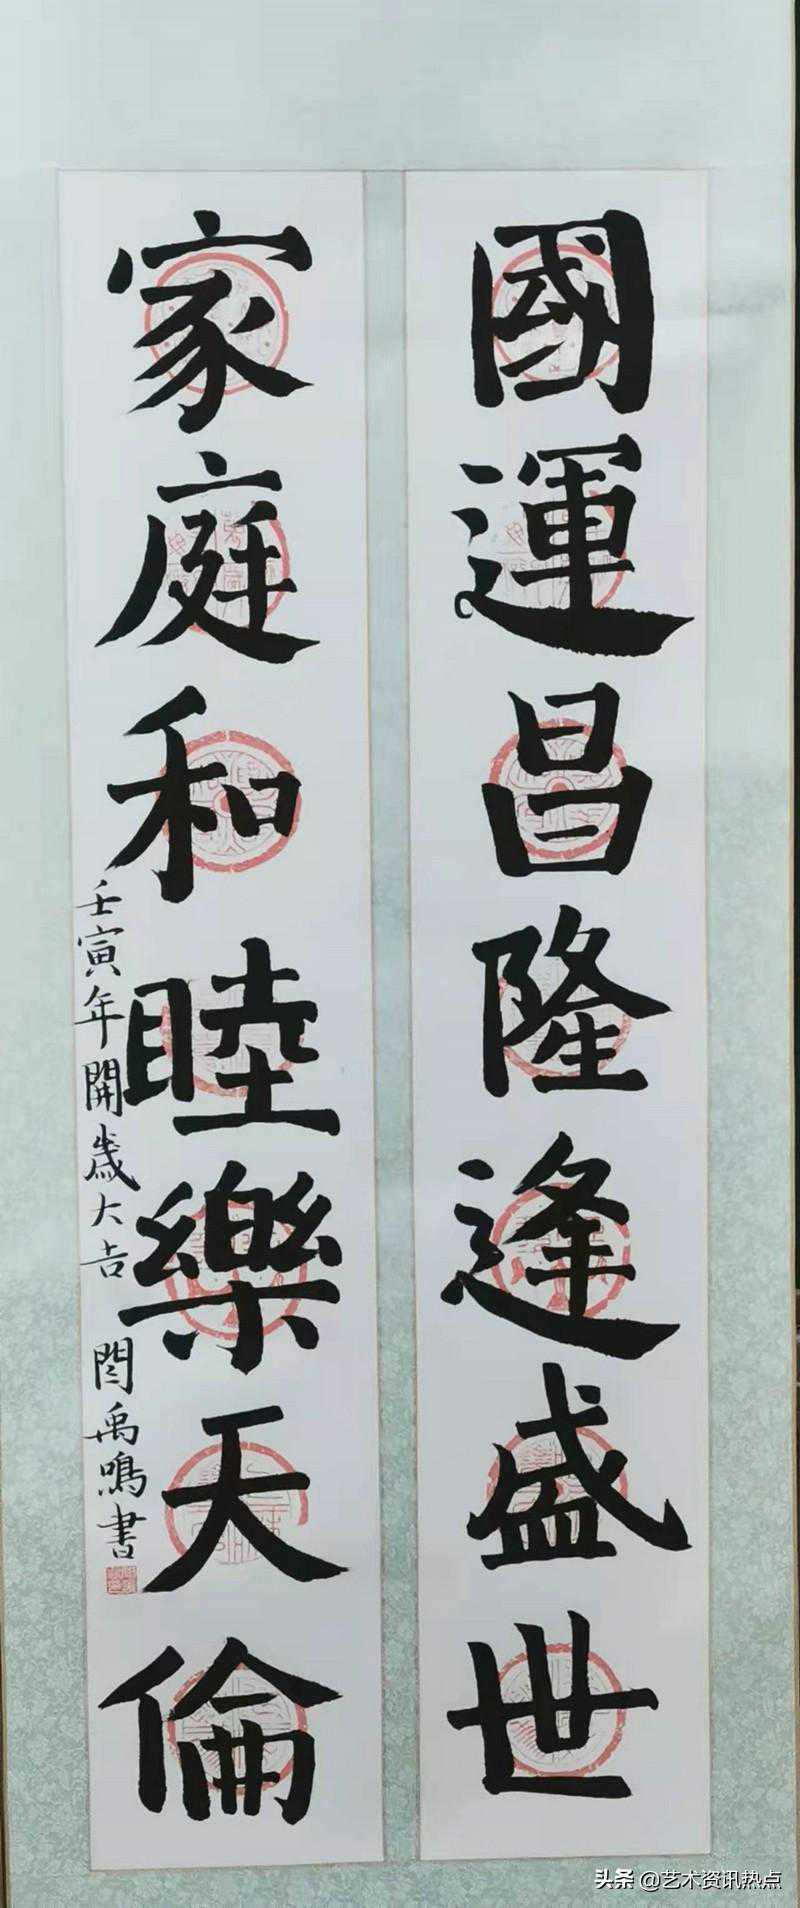 國運昌隆逢盛世
家庭和睦樂天倫
壬寅年開歲大吉 閆禹鳴書
头条 @艺术资讯热点